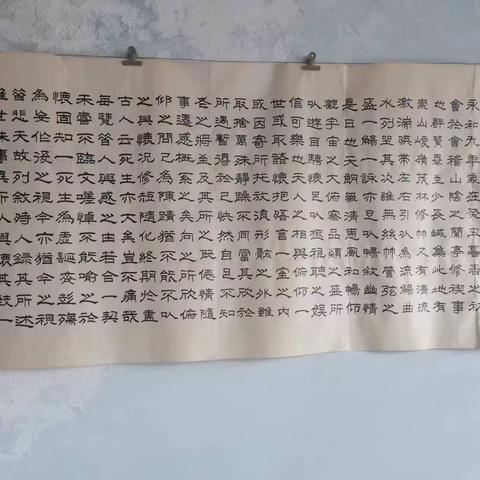 永和九年歲在癸丑暮春之初
會於會稽山陰之蘭亭脩稧事
也群賢畢至少長咸集此地有
崇山峻嶺茂林修竹又有清流
激湍映帶左右引以為流觴曲
水列坐其次雖無絲竹管弦之
盛一觴一詠亦足以暢敘幽情
是日也天朗氣清惠風和暢仰
觀宇宙之大俯察品類之盛所
以遊目騁懷足以極視聽之娛
信可樂也夫人之相與俯仰一
世或取諸懷抱悟言一室之內
或因寄所托放浪形骸之外雖
取捨萬殊靜躁不同當其欣於
所遇暫得於己快然自足不知
老之將至及其所之既倦情隨
事遷感慨系之矣向之所欣俯
仰之間已為陳跡猶不能不以
之興懷況修短隨化終期於盡
古人云死生亦大矣豈不痛哉
每覽昔人興感之由若合一契
未嘗不臨文嗟悼不能喻之於
懷固知一死生為虛誕齊彭殤
為妄作後之視今亦猶今之視
昔悲夫故列敘時人錄其所述
雖世殊事異所以興懷其致一